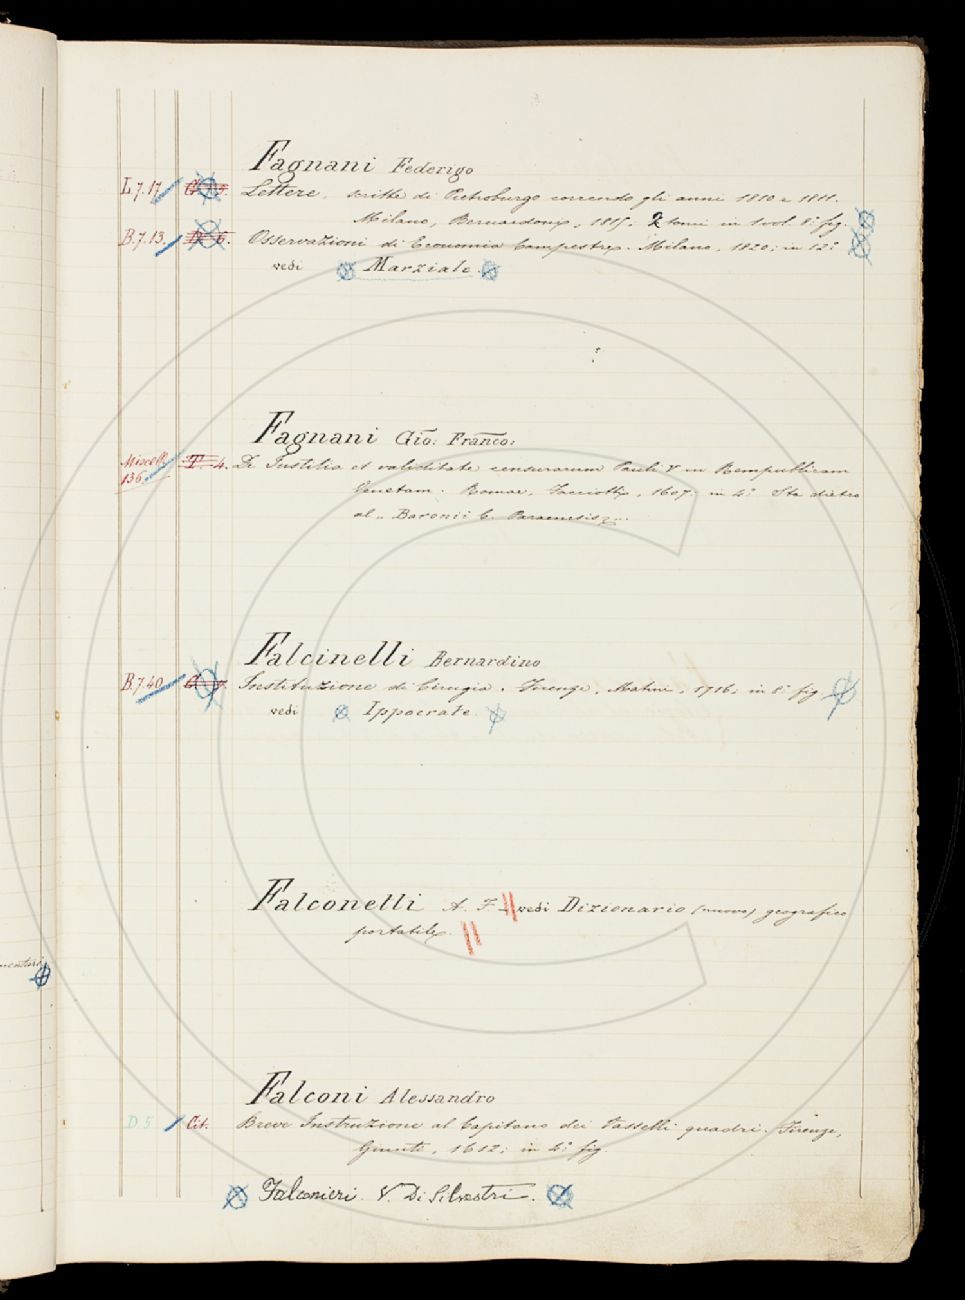 Fagnani Federigo
L.7.17 Lettere, scritte di Pietroburgo correndo gli anni 1810 e 1811.
Milano, Bernardoni, 1815; 2 tomi in 1 vol. 8º fig.
B.7.13. 6. Osservazioni di Economia Campestre. Milano, 1820; in 12º
vedi Marziale.
Fagnani Gio: Franco:
Miscell. 136. T. 4. De Justitia et validitate censurarum Pauli V in Rempublicam
Venetam. Romae, Facciotti, 1607; in 4º Sta dietro
al „ Baronii C. Paraenesis „.
Falcinelli Bernardino
B.7.40 Instituzione di Cirugia. Firenze, Matini, 1716; in 8º fig
vedi Ippocrate.
Falconelli A. F. vedi Dizionario (nuovo) geografico
portatile.
Falconi Alessandro
D 5 Cit. Breve Instruzione al Capitano dei Vasselli quadri. Firenze,
Giunti, 1612; in 4º fig.
Falconieri V. Di Silvestri.
mentari